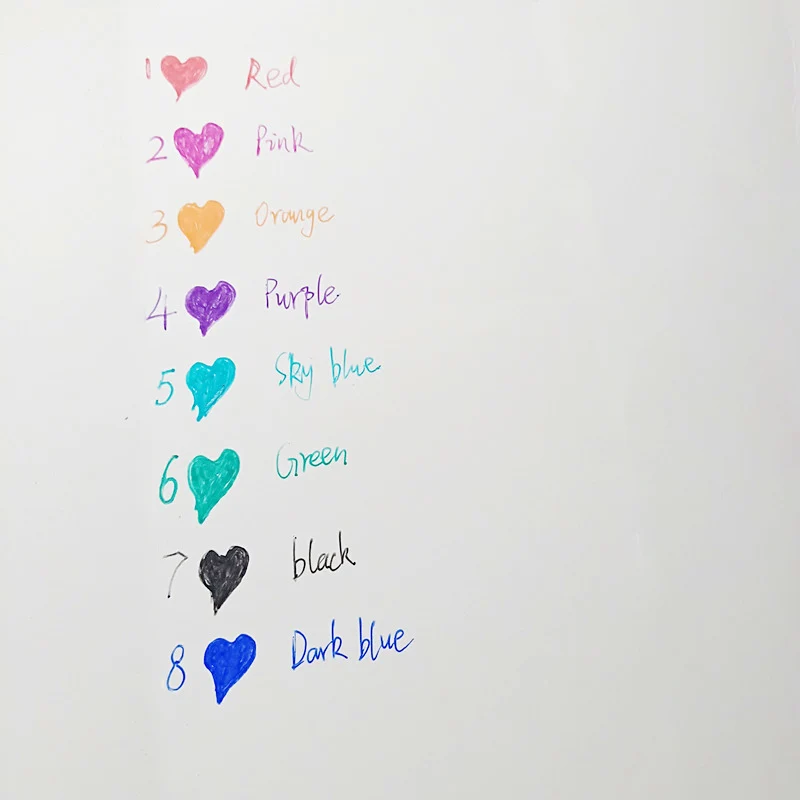 1 Red
2 Pink
3 Orange
4 Purple
5 Sky blue
6 Green
7 black
8 Dark blue